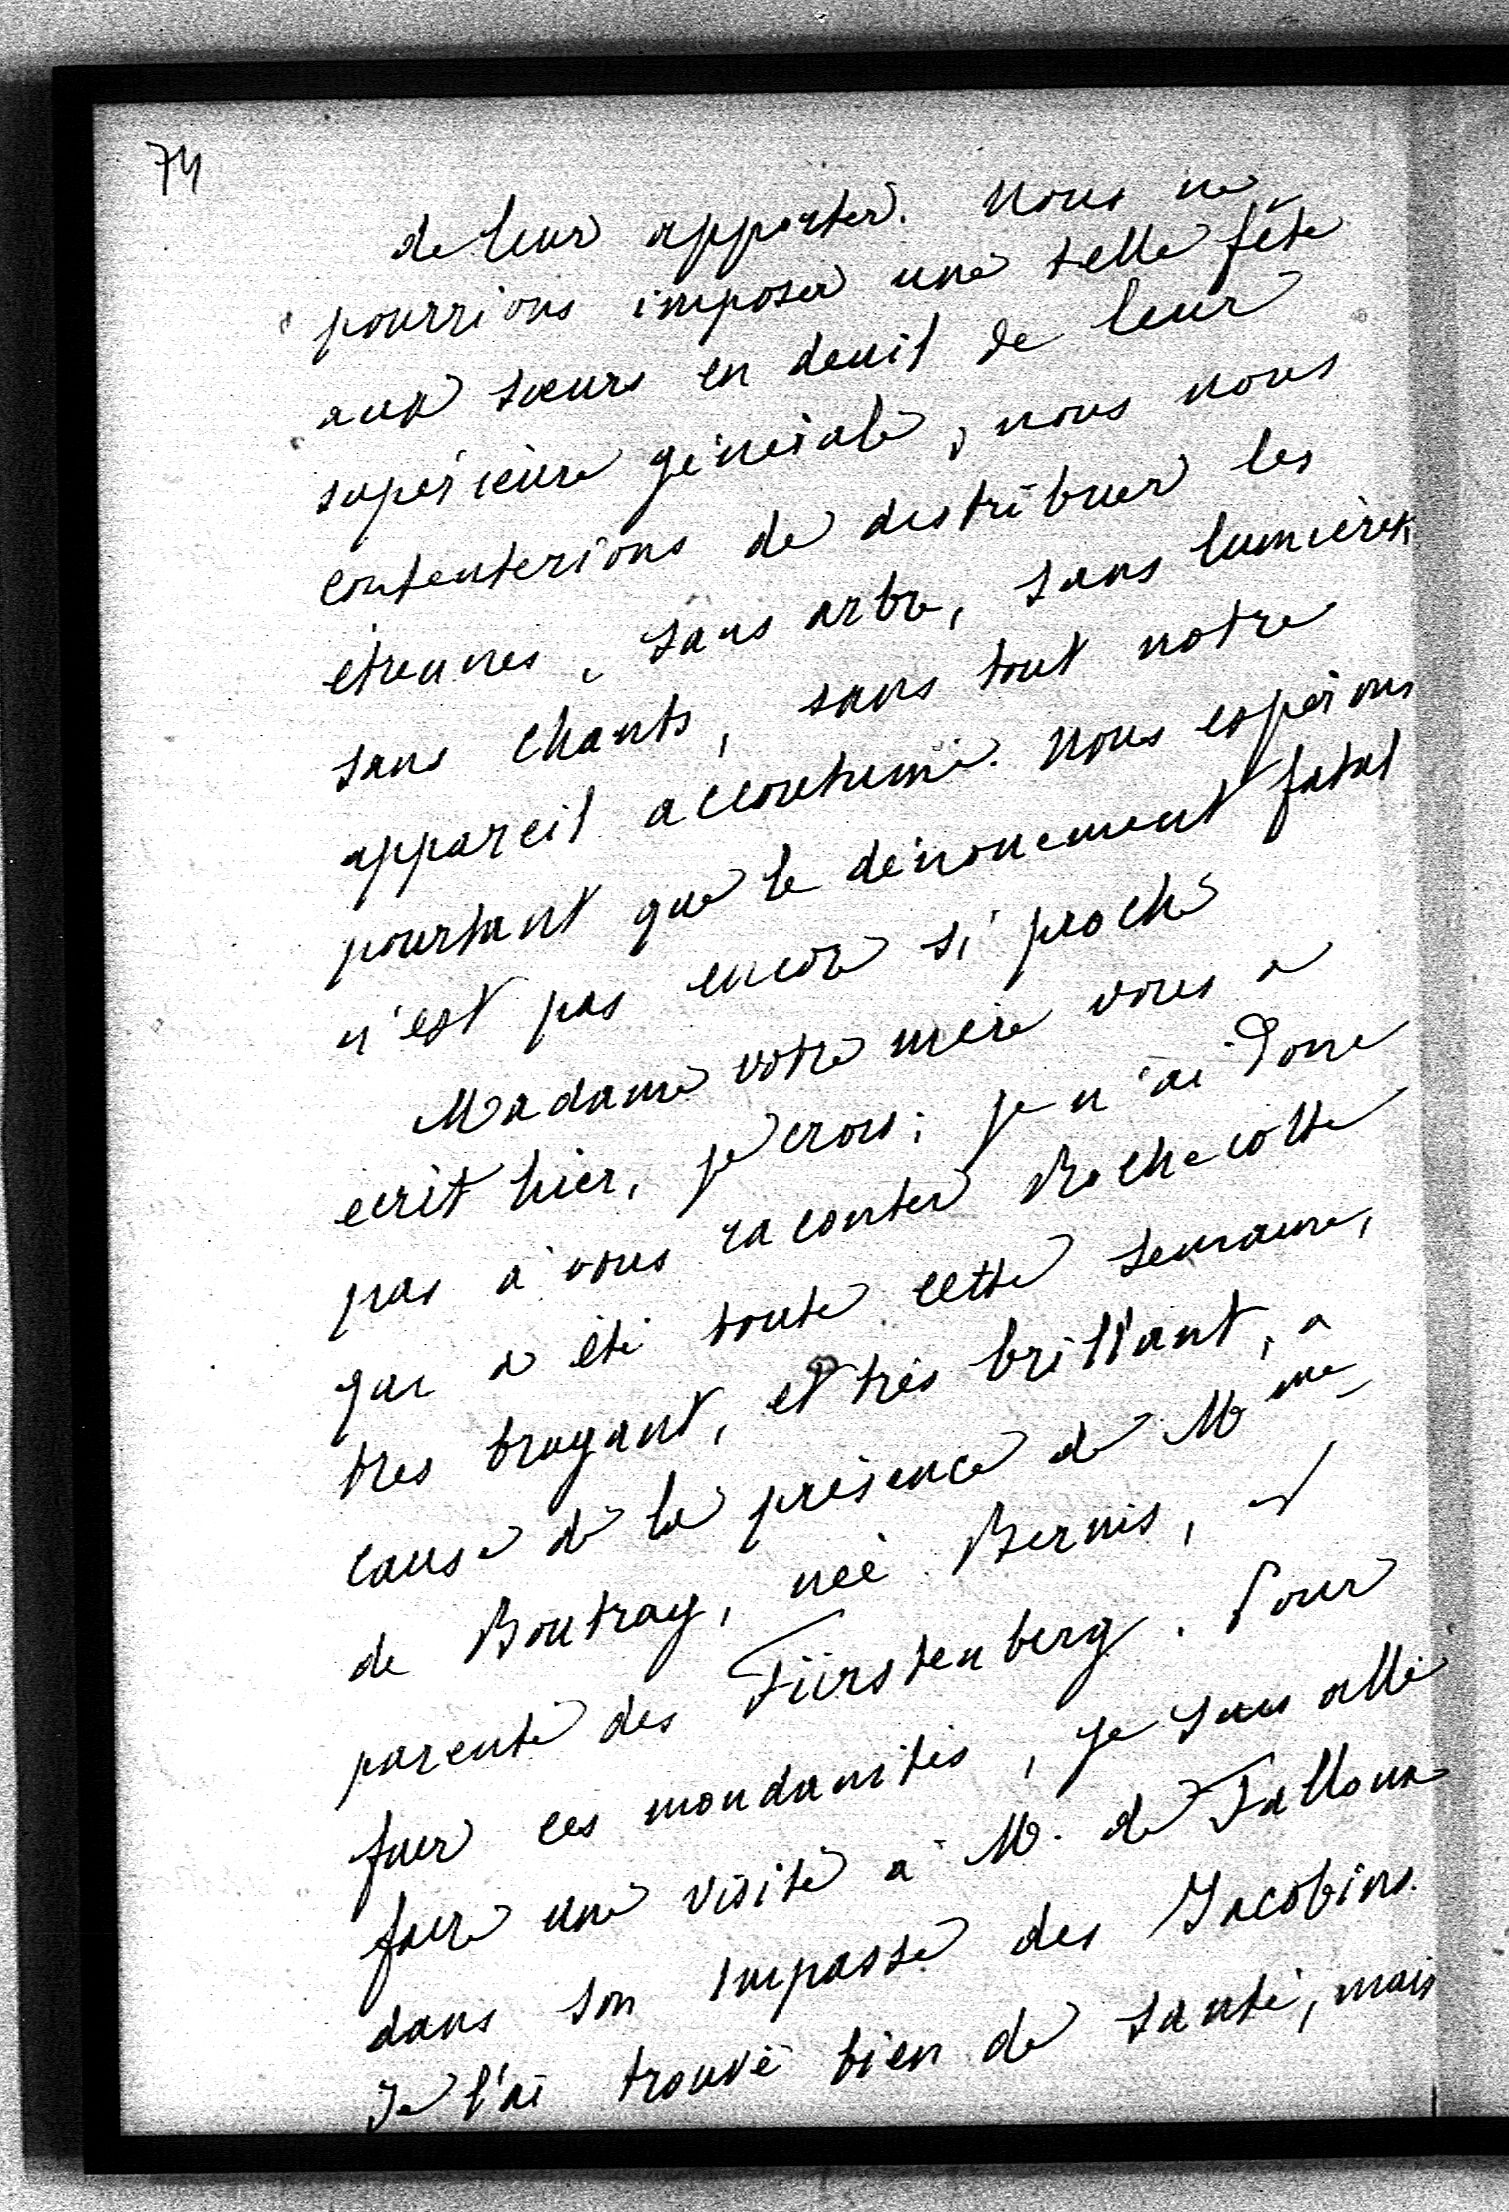 74
de leur apporter. Nous ne
pourrions imposer une telle fête
aux sœurs en deuil de leur
supérieure générale, nous nous
contenterions de distribuer les
étrennes, sans arbre, sans lumières,
sans chants, sans tout notre
appareil accoutumé. Nous espérons
pourtant que le dénouement fatal
n'est pas encore si proche
Madame votre mère vous a
écrit hier, je crois; je n'ai donc
pas à vous raconter Rochecotte
qui a été toute cette semaine,
très bruyant, et très brillant, à
cause de la présence de Mme
de Boutray, née Bernis, et
parente des Fürstenberg. Pour
fuir ces mondanités, je suis allé
faire une visite à M. de Falloux
dans son impasse des Jacobins.
Je l'ai trouvé bien de santé, mais